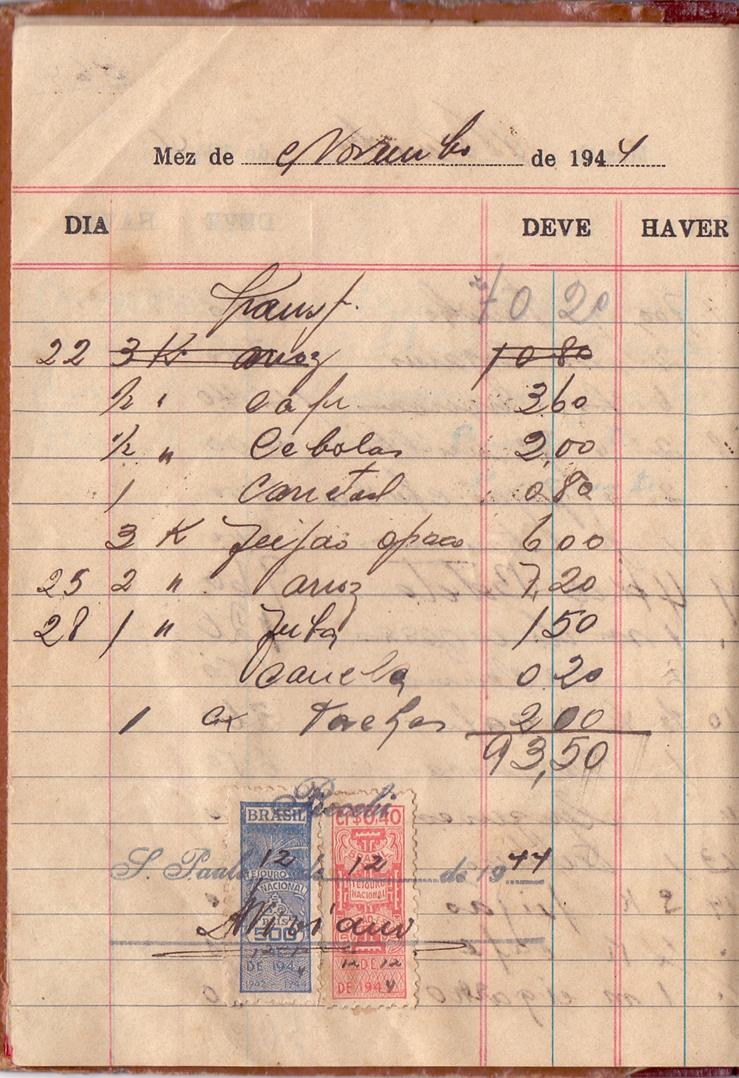 Mez de Novembo de 1944
DIA DEVE HAVER
Transp. 70 20
22 3 K arroz 10 80
1/2 " Cafe 3,60
1/2 " Cebolas 2,00
1 0,80
3 K Feijão 6 00
25 2 " arroz 7,20
28 1 " Fubá 1,50
Canela 0 20
1 Cx Tachas 2 00
93,50
Recebi
BRASIL Cr$0,40
S. Paulo 12 de 12 de 1944
TESOURO NACIONAL TESOURO NACIONAL
500
12 12
DE 1944 DE 1944
1942 1944